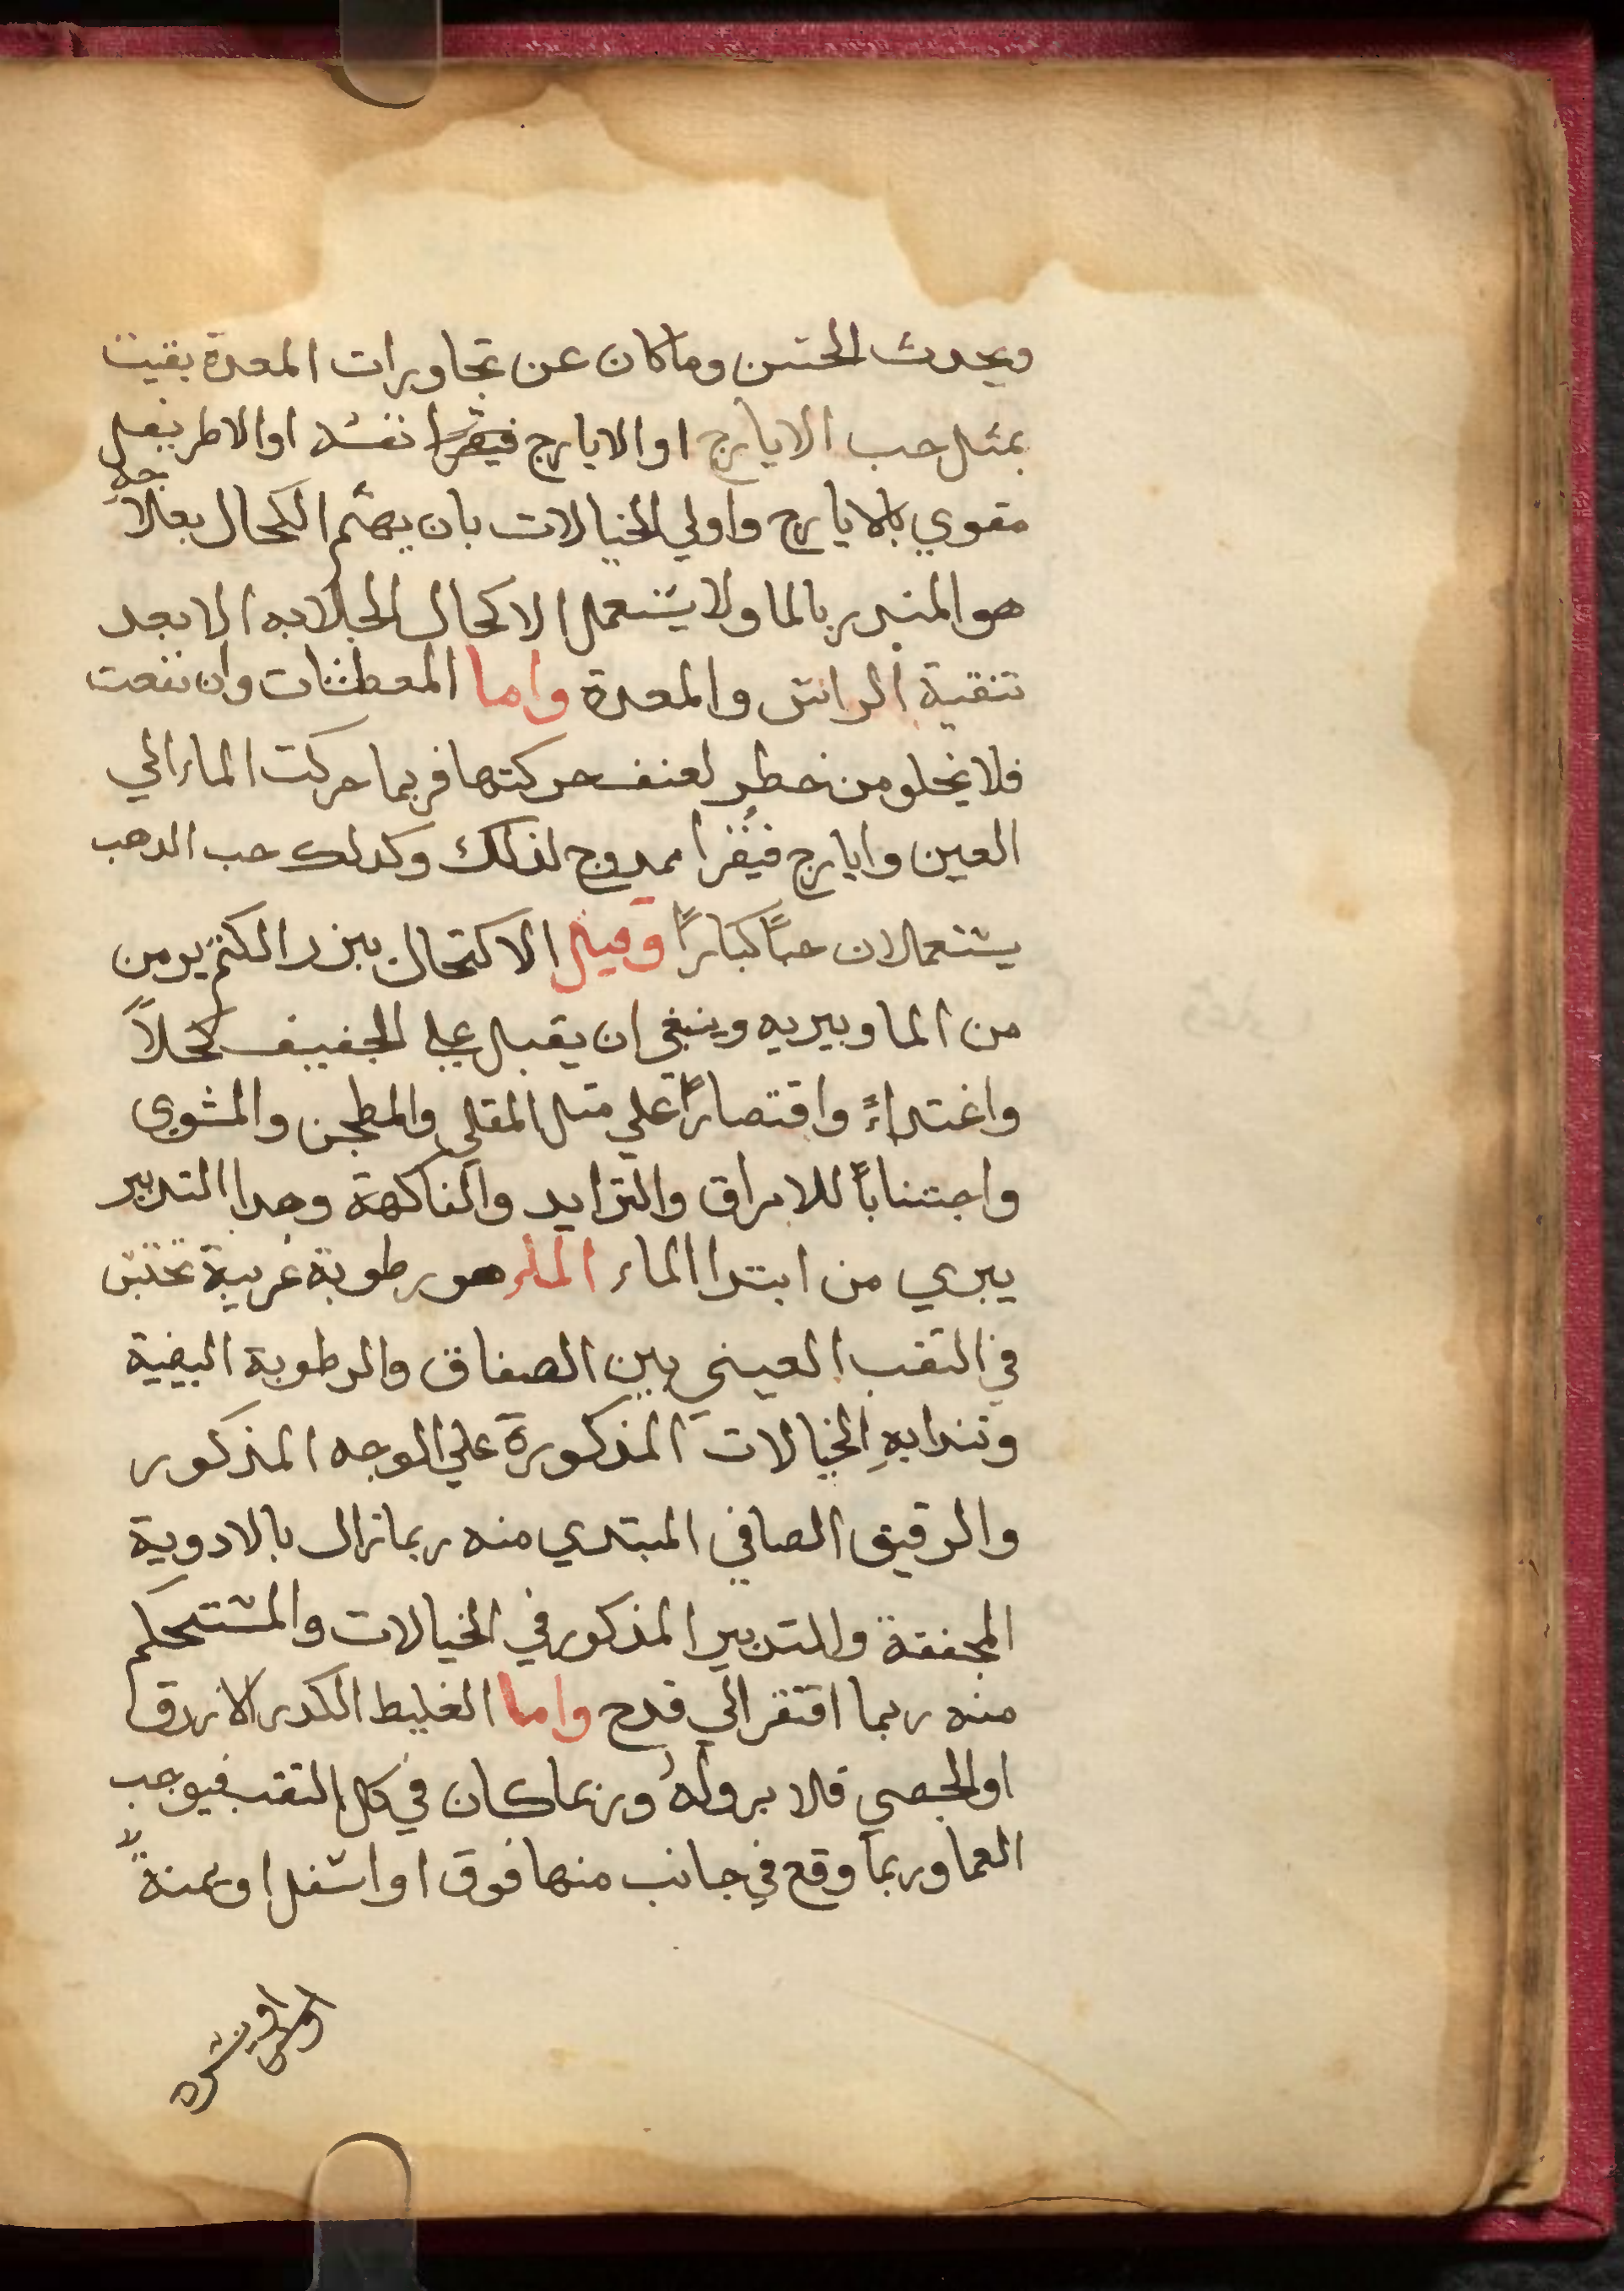 ويحدث الحتن وما كان عن تجاويرات المعدة بقيت
بمثل حب الايارج او الايارج فيقرا نفسه او الاطريفل
مقوي بالايارج واولي الخيالات بان يهتم الكحال بعلاجه
هو المندر بالما ولا يستعمل الاكحال الجلابه الا بعد
تنقية الراس والمعدة واما المعطشات وان نفعت
فلا يخلو من خطر لعنف حركتها فربما حركت الماء الي
العين وايارج فيقرا ممدوح لذلك وكدلك حب الدهب
يستعملان حبًا كبارًا وقيل الاكتحال ببزر الكتم يومن
من الما ويبريه وينبغي ان يقبل علي الجفيف كحلاً
واغتداءً واقتصارًا علي متل المقلي والمطجن والمشوي
واجتنابًا للامراق والترايد والفاكهة وهدا التدبير
يبري من ابتدا الماء الماء هو رطوبة غريبة تحتبس
في التقب العيني بين الصفاق والرطوبة البيضية
وتندا به الخيالات المذكورة علي الوجه المذكور
والرقيق الصافي المبتدي منه ربما زال بالادوية
المجففة والتدبير المذكور في الخيالات والمستحكم
منه ربما افتقر الي قدح واما الغليط الكدر الازرق
او الجصي فلا برو له وربما كان في كل التقب فيوجب
العما وربما وقع في جانب منها فوق او اسفل او يمنةً
او يسره